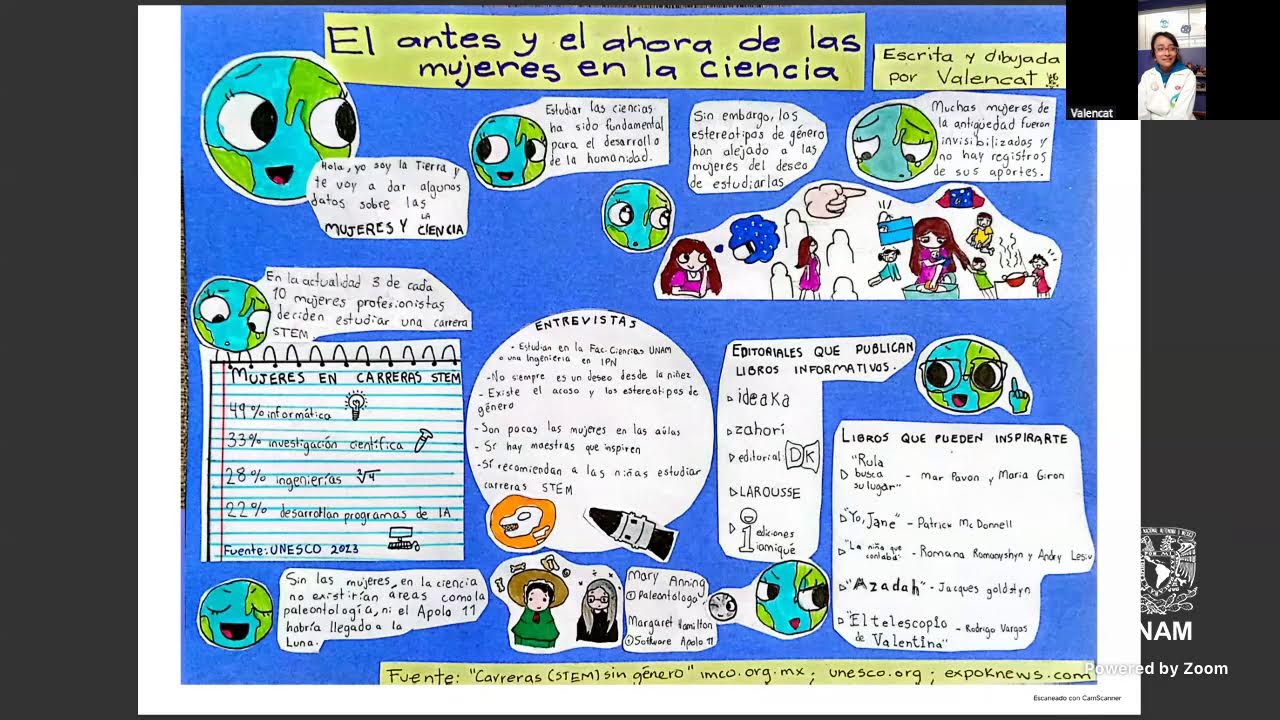 El antes y el ahora de las
mujeres en la ciencia
Escrita y dibujada
por Valencat
Valencat
Hola, yo soy la Tierra y
te voy a dar algunos
datos sobre las
LA
MUJERES Y CIENCIA
Estudiar las ciencias
ha sido fundamental
para el desarrollo
de la humanidad.
Sin embargo, los
estereotipos de género
han alejado a las
mujeres del deseo
de estudiarlas
Muchas mujeres de
la antigüedad fueron
invisibilizadas y
no hay registros
de sus aportes.
En la actualidad 3 de cada
10 mujeres profesionistas
deciden estudiar una carrera
STEM
MUJERES EN CARRERAS STEM
49% informática
33% investigación científica
28% ingenierías
22% desarrollan programas de IA
Fuente: UNESCO 2023
ENTREVISTAS
- Estudian en la Fac. Ciencias UNAM
o una Ingeniería en IPN
- No siempre es un deseo desde la niñez
- Existe el acoso y los estereotipos de
género
- Son pocas las mujeres en las aulas
- Sí hay maestras que inspiren
- Sí recomiendan a las niñas estudiar
carreras STEM
EDITORIALES QUE PUBLICAN
LIBROS INFORMATIVOS.
ideaKa
zahorí
editorial DK
LAROUSSE
ediciones
iamiqué
LIBROS QUE PUEDEN INSPIRARTE
"Rula
busca
su lugar" - Mar Pavon y María Giron
"Yo, Jane" - Patrick McDonnell
"La niña que
contaba" - Romana Romanyshyn y Andry Lesiv
"Azadah" - Jacques goldstyn
"El telescopio
de Valentina" - Rodrigo Vargas
Sin las mujeres en la ciencia
no existirían áreas como la
paleontología, ni el Apolo 11
habría llegado a la
Luna.
Mary Anning
Paleontologa
Margaret Hamilton
Software Apolo 11
Fuente: "Carreras (STEM) sin género" imco.org.mx; unesco.org; expoknews.com
Escaneado con CamScanner
UNAM
Powered by Zoom